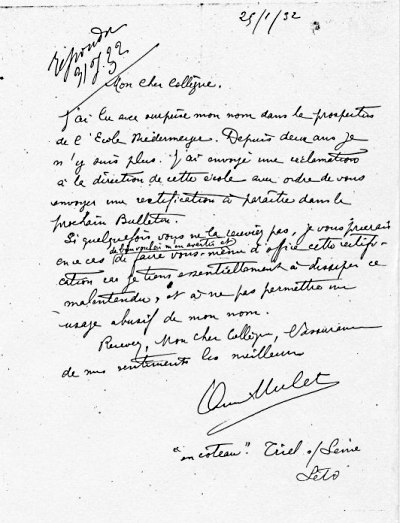 25/1/32
Répondu
31/1/32
Mon Cher Collègue.
J'ai lu avec surprise mon nom dans le prospectus
de l'Ecole Niedermeyer. Depuis deux ans je
n'y suis plus. J'ai envoyé une réclamation
à la direction de cette école avec ordre de vous
envoyer une rectification à paraître dans le
prochain Bulletin.
Si quelquefois vous ne la receviez pas, je vous prierais
de bien vouloir m'en avertir et
en ce cas de faire vous-même d'office cette rectifi-
cation car je tiens essentiellement à dissiper ce
malentendu, et à ne pas permettre un
usage abusif de mon nom.
Recevez, Mon Cher Collègue, l'assurance
de mes sentiments les meilleurs
Mulet
"en coteau". Triel s/Seine